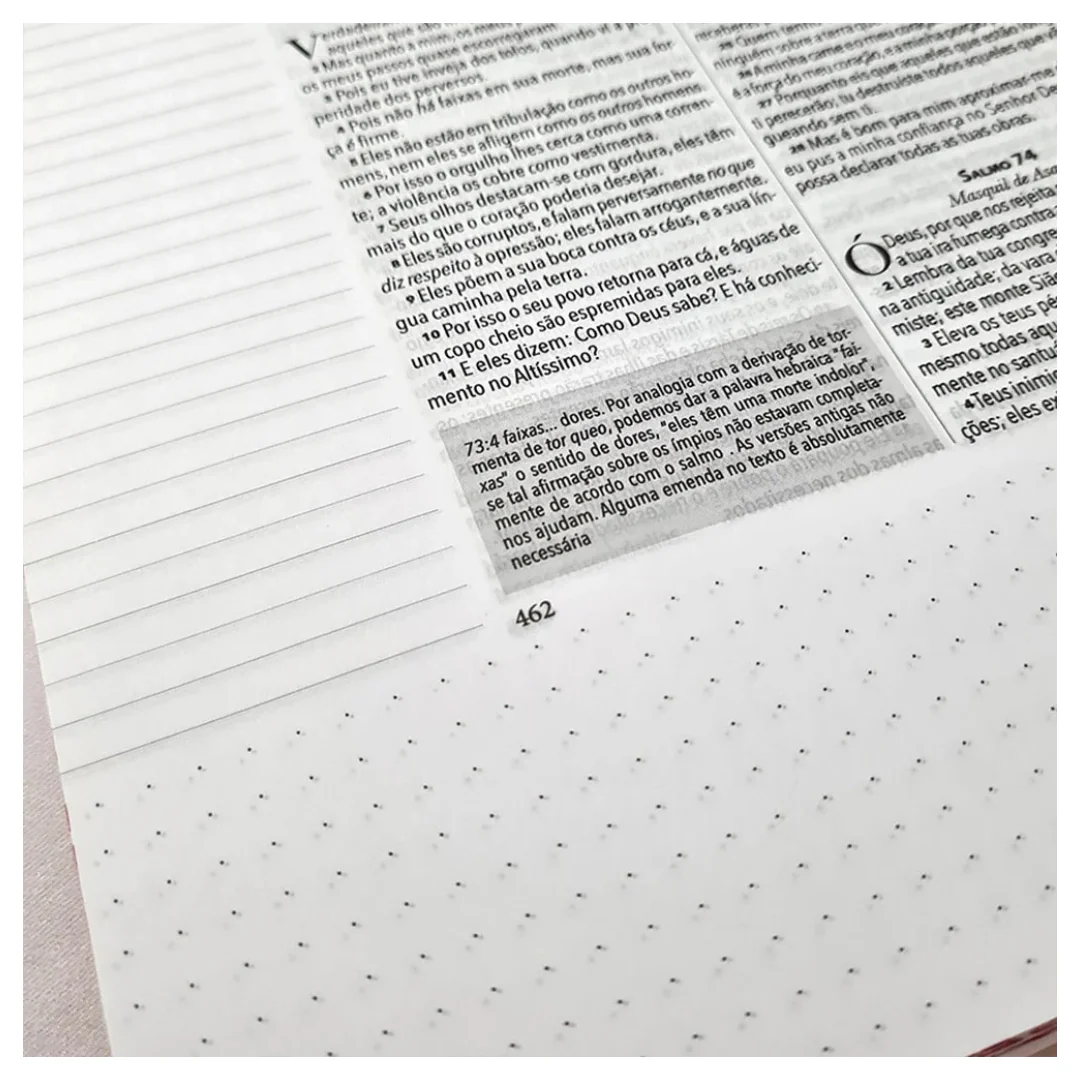 aqueles
4 Mas quanto a mim, os
os meus passos quase escorregaram.
3 Pois eu tive inveja dos tolos, quando vi a
peridade dos perversos.
4 Pois não há faixas em sua morte, mas sua for-
ça é firme.
5 Eles não estão em tribulação como os outros ho-
mens, nem eles se afligem como os outros homens.
6 Por isso o orgulho lhes cerca como uma corren-
te; a violência os cobre como vestimenta.
7 Seus olhos destacam-se com gordura, eles têm
mais do que o coração poderia desejar.
8 Eles são corruptos, e falam perversamente no que
diz respeito à opressão; eles falam arrogantemente.
9 Eles põem a sua boca contra os céus, e a sua lín-
gua caminha pela terra.
10 Por isso o seu povo retorna para cá, e águas de
um copo cheio são espremidas para eles.
11 E eles dizem: Como Deus sabe? E há conheci-
mento no Altíssimo?
73:4 faixas... dores. Por analogia com a derivação de tor-
menta de tor queo, podemos dar a palavra hebraica "fai-
xas" o sentido de dores, "eles têm uma morte indolor",
se tal afirmação sobre os ímpios não estavam completa-
mente de acordo com o salmo . As versões antigas não
nos ajudam. Alguma emenda no texto é absolutamente
necessária
462
ninguém sobre a terra que
26 A minha carne e o meu coração
é a força do meu coração, e a minha
27 Porquanto eis que aqueles que estão
ti perecerão; tu destruíste todos aqueles que
gueando sem ti.
28 Mas é bom para mim aproximar-me
eu pus a minha confiança no Senhor
possa declarar todas as tuas obras.
SALMO 74
Masquil de
Ó Deus, por que nos rejeita
a tua ira fumega contra
2 Lembra da tua congre
na antiguidade; da vara
miste; este monte Siã
3 Eleva os teus pé
mesmo todas aqu
mente no santuá
4 Teus inimi
ções; eles ex